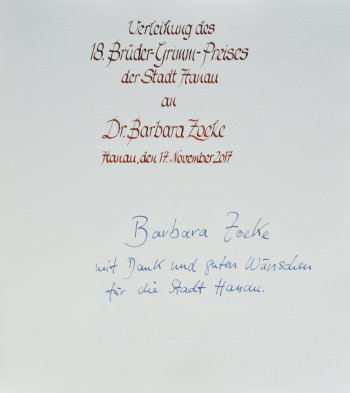 Verleihung des
18. Brüder-Grimm-Preises
der Stadt Hanau
an
Dr. Barbara Zoeke
Hanau, den 17. November 2017
Barbara Zoeke
mit Dank und guten Wünschen
für die Stadt Hanau.